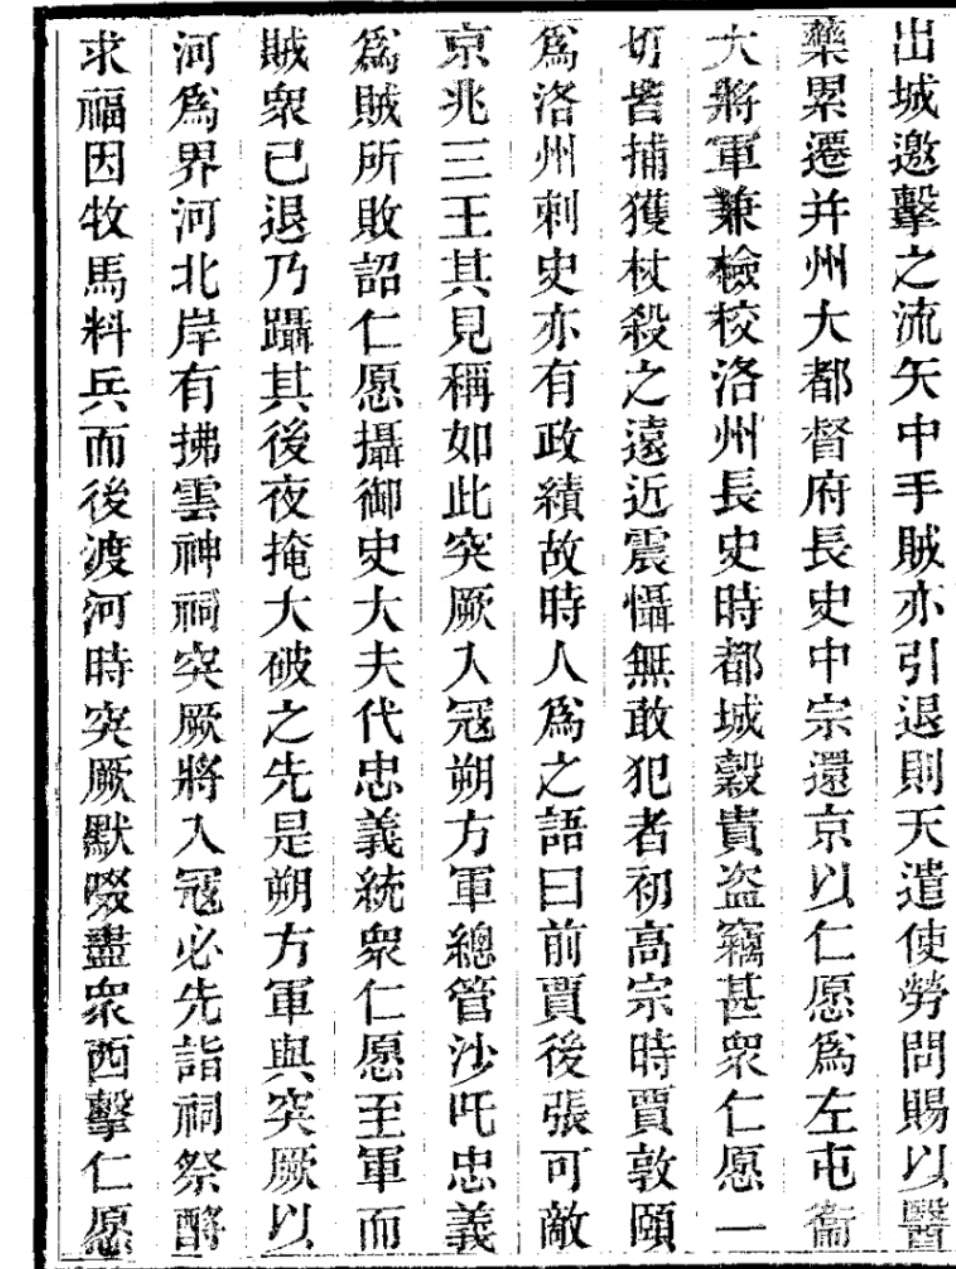 出城邀擊之流矢中手賊亦引退則天遣使勞問賜以醫
藥累遷并州大都督府長史中宗還京以仁愿爲左屯衞
大將軍兼檢校洛州長史時都城穀貴盜竊甚衆仁愿一
切皆捕獲杖殺之遠近震懾無敢犯者初高宗時賈敦頤
爲洛州刺史亦有政績故時人爲之語曰前賈後張可敵
京兆三王其見稱如此突厥入冦朔方軍總管沙吒忠義
爲賊所敗詔仁愿攝御史大夫代忠義統衆仁愿至軍而
賊衆已退乃躡其後夜掩大破之先是朔方軍與突厥以
河爲界河北岸有拂雲神祠突厥將入冦必先詣祠祭酹
求福因牧馬料兵而後渡河時突厥默啜盡衆西擊仁愿